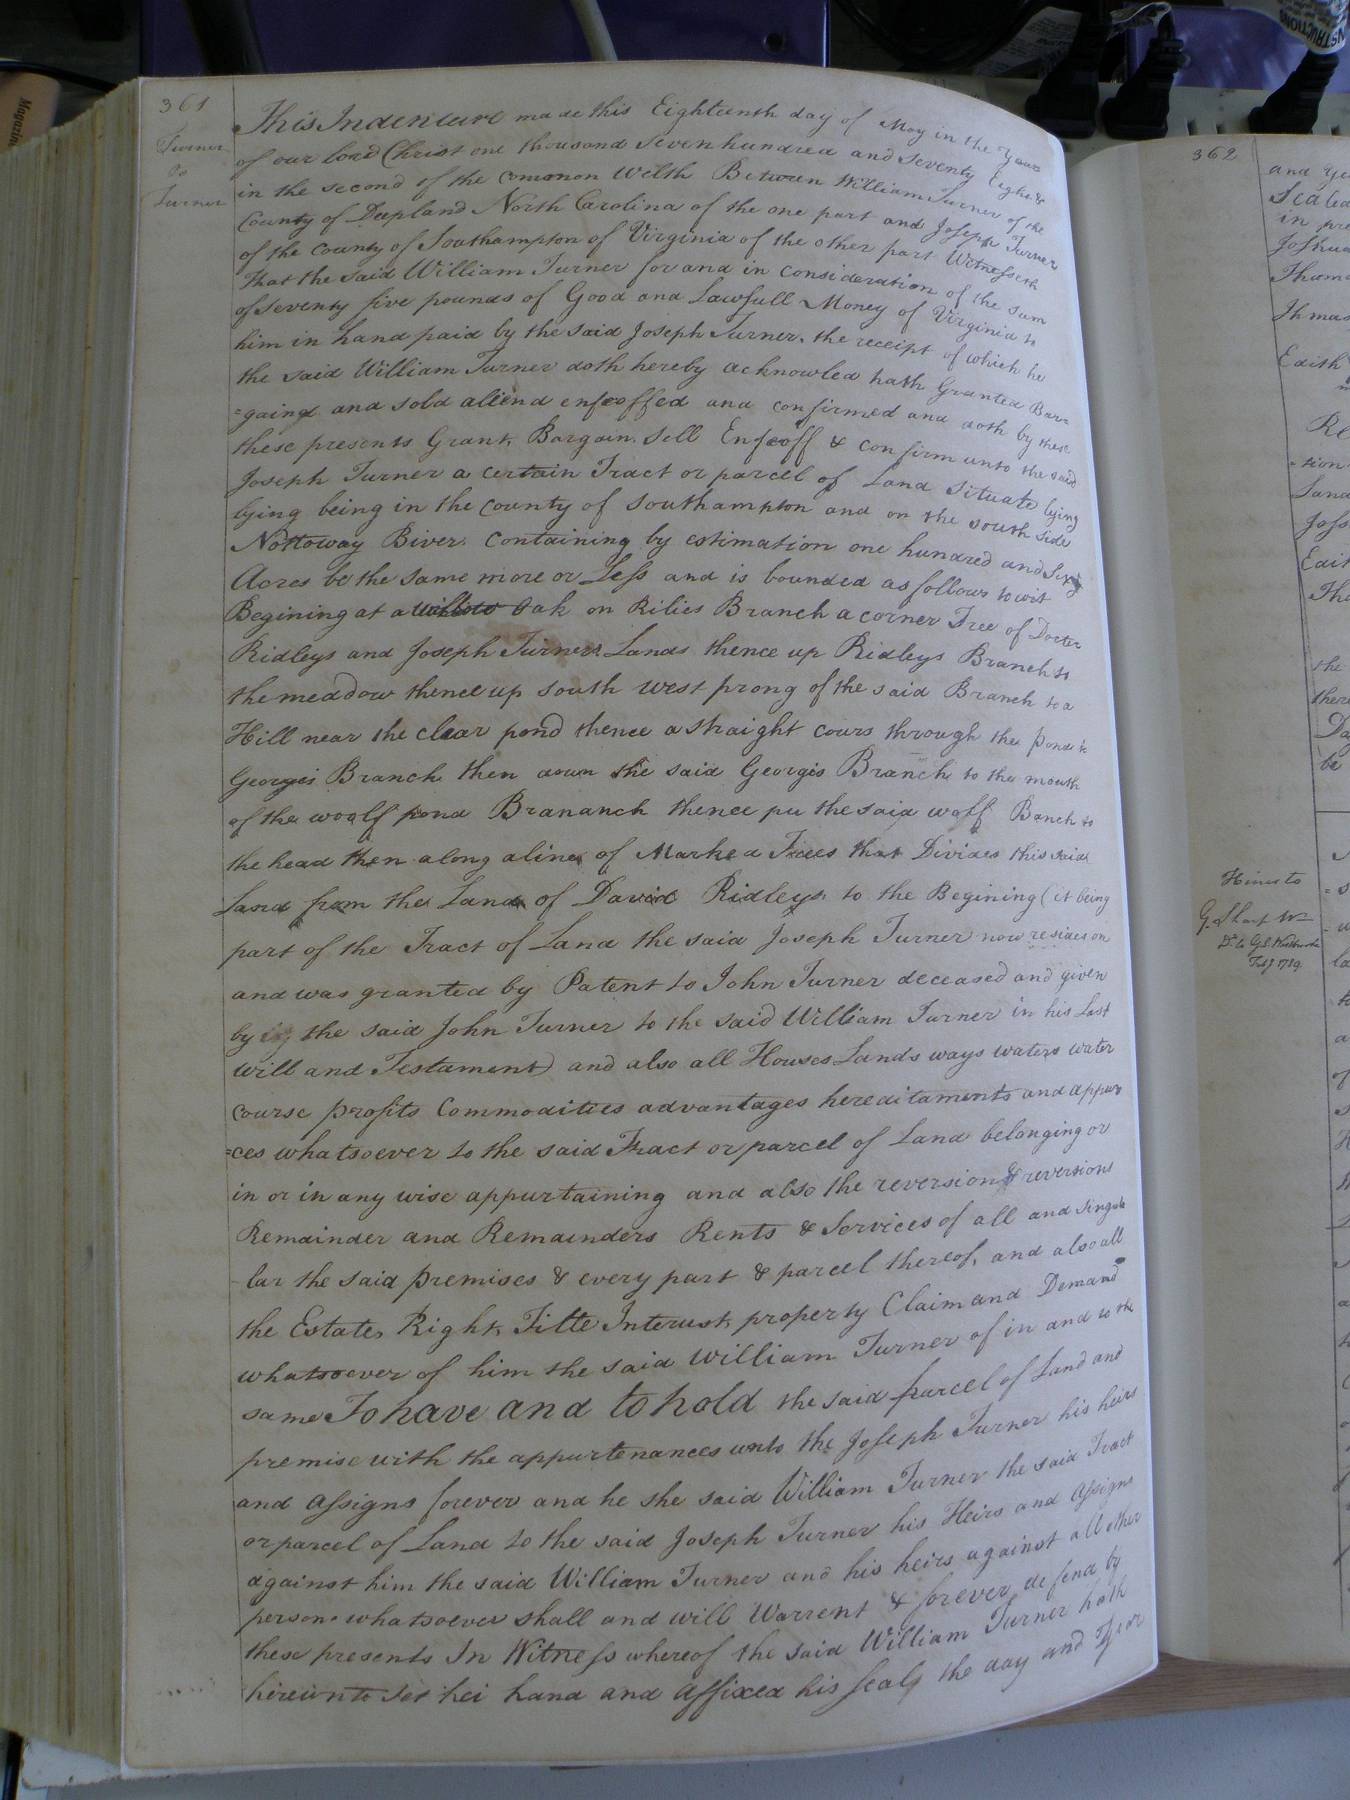 361
Turner
to
Turner
This Indenture made this Eighteenth day of May in the Year
of our lord Christ one thousand seven hundred and seventy Eight &
in the second of the common Welth Between William Turner of the
County of Deepland North Carolina of the one part and Joseph Turner
of the County of Southampton of Virginia of the other part Witnesseth
that the said William Turner for and in consideration of the sum
of seventy five pounds of Good and Lawfull Money of Virginia to
him in hand paid by the said Joseph Turner, the receipt of which he
the said William Turner doth hereby acknowled hath Granted Bar=
=gaind and sold aliend enfeoffed and confirmed and doth by these
these presents Grant, Bargain, Sell Enfeoff & confirm unto the said
Joseph Turner a certain Tract or parcel of Land situate lying
lying being in the county of Southampton and on the south side
Nottoway River. Containing by estimation one hundred and Sixty
Acres be the same more or Less and is bounded as follows to wit
Begining at a willow Oak on Rilies Branch a corner Tree of Docter
Ridleys and Joseph Turners Lands thence up Ridleys Branch to
the meaddow thence up south west prong of the said Branch to a
Hill near the clear pond thence a straight cours through the pond to
Georges Branch then down the said Georges Branch to the mouth
of the woolf pond Brananch thence pu the said wolf Banch to
the head then along a line of Marked Trees that Divides this said
Land from the Land of David Ridleys to the Begining (it being
part of the Tract of Land the said Joseph Turner now resides on
and was granted by Patent to John Turner deceased and given
by the said John Turner to the said William Turner in his Last
will and Testament) and also all Houses Lands ways waters water
course profits Commodities advantages hereditaments and appur
=ces whatsoever to the said Tract or parcel of Land belonging or
in or in any wise appurtaining and also the reversion & reversions
Remainder and Remainders Rents & Services of all and singu
lar the said premises & every part & parcel thereof, and also all
the Estate, Right, Title Interust, property Claim and Demand
whatsoever of him the said William Turner of in and to the
same To have and to hold the said parcel of Land and
premise with the appurtenances unto the Joseph Turner his heirs
and assigns forever and he the said William Turner the said Tract
or parcel of Land to the said Joseph Turner his Heirs and assigns
against him the said William Turner and his heirs against all other
person whatsoever shall and will Warrent & forever defend by
these presents In Witness whereof the said William Turner hath
hereunto set hei hand and affixed his seal the day and Year
362
and ye
Sealed
in pre
Joshua
Thom
Thmas
Edith
Re
tion
Land
Jos
Edit
The
the
there
Da
be
Hines to
G. Sharp